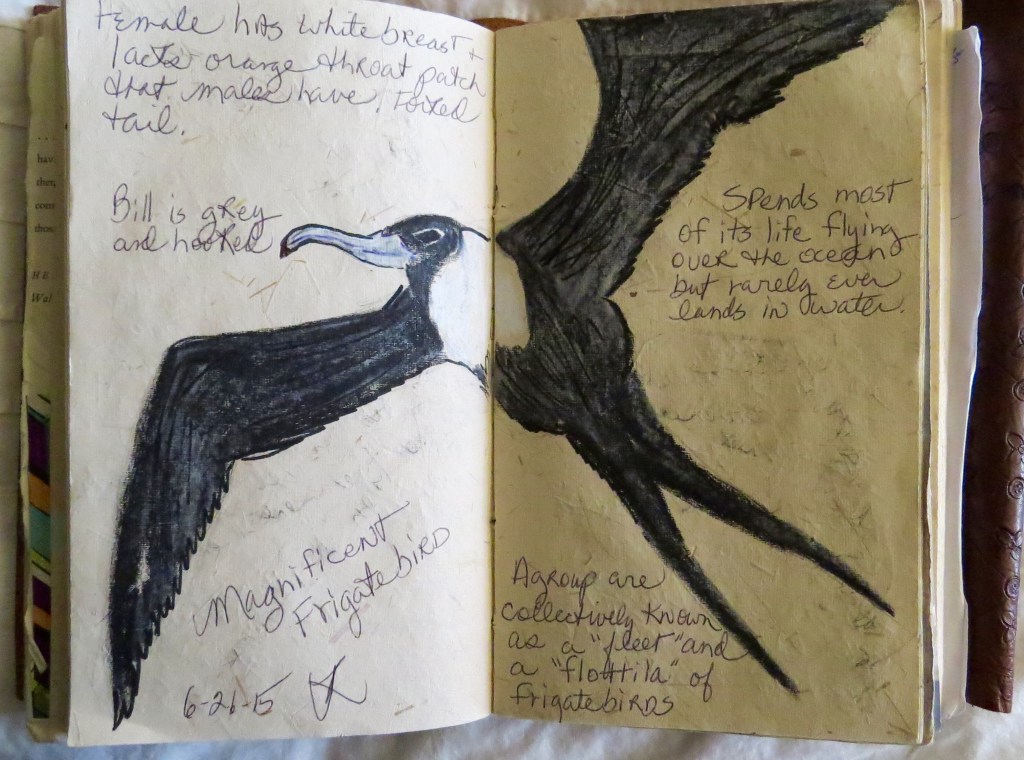 Female has white breast +
lacks orange throat patch
that males have. Forked
tail.
Bill is grey
and hooked
Magnificent
Frigatebird
6-21-15
Spends most
of its life flying
over the ocean
but rarely ever
lands in water.
A group are
collectively known
as a "fleet" and
a "flottila" of
frigatebirds
have
they
HE